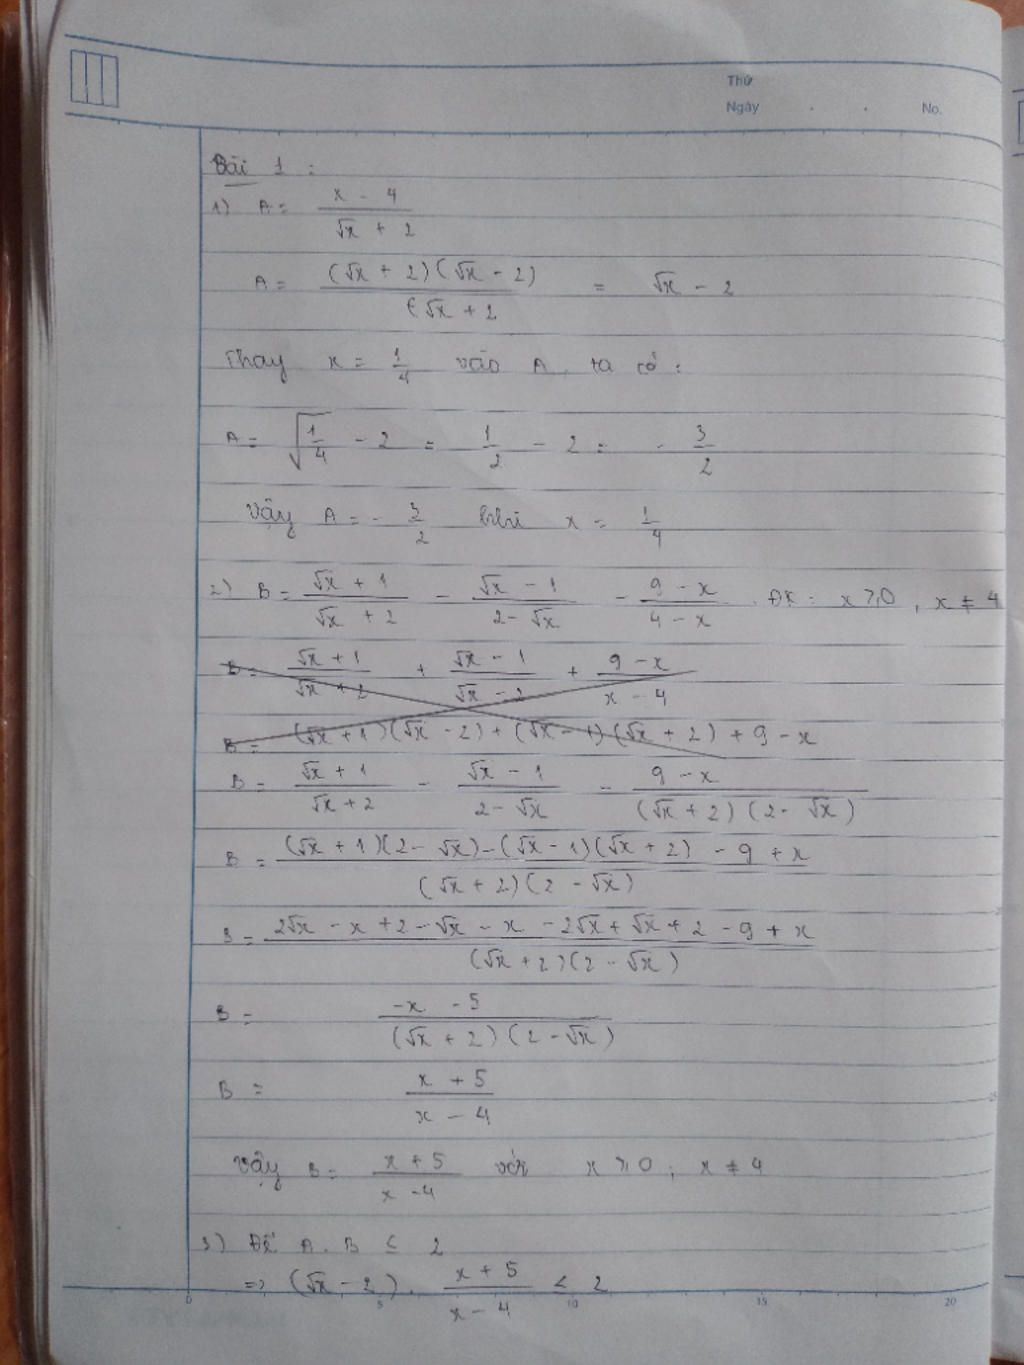 Thứ
Ngày . . No.
Bài 1 :
1) A = (x - 4)/(√x + 2)
A = ((√x + 2)(√x - 2))/((√x + 2) = √x - 2
Thay x = 1/4 vào A, ta có :
A = √(1/4) - 2 = 1/2 - 2 = - 3/2
Vậy A = - 3/2 khi x = 1/4
2) B = (√x + 1)/(√x + 2) - (√x - 1)/(2 - √x) - (9 - x)/(4 - x) . ĐK : x ⩾ 0 , x ≠ 4
B = (√x + 1)/(√x + 2) + (√x - 1)/(√x - 2) + (9 - x)/(x - 4)
B = (√x + 1)(√x - 2) + (√x - 1)(√x + 2) + 9 - x
B = (√x + 1)/(√x + 2) - (√x - 1)/(2 - √x) - (9 - x)/((√x + 2)(2 - √x))
B = ((√x + 1)(2 - √x) - (√x - 1)(√x + 2) - 9 + x)/((√x + 2)(2 - √x))
B = (2√x - x + 2 - √x - x - 2√x + √x + 2 - 9 + x)/((√x + 2)(2 - √x))
B = (-x - 5)/((√x + 2)(2 - √x))
B = (x + 5)/(x - 4)
Vậy B = (x + 5)/(x - 4) với x ⩾ 0 ; x ≠ 4
3) Để A . B ≤ 2
=> (√x - 2) . (x + 5)/(x - 4) ≤ 2
0 5 10 15 20